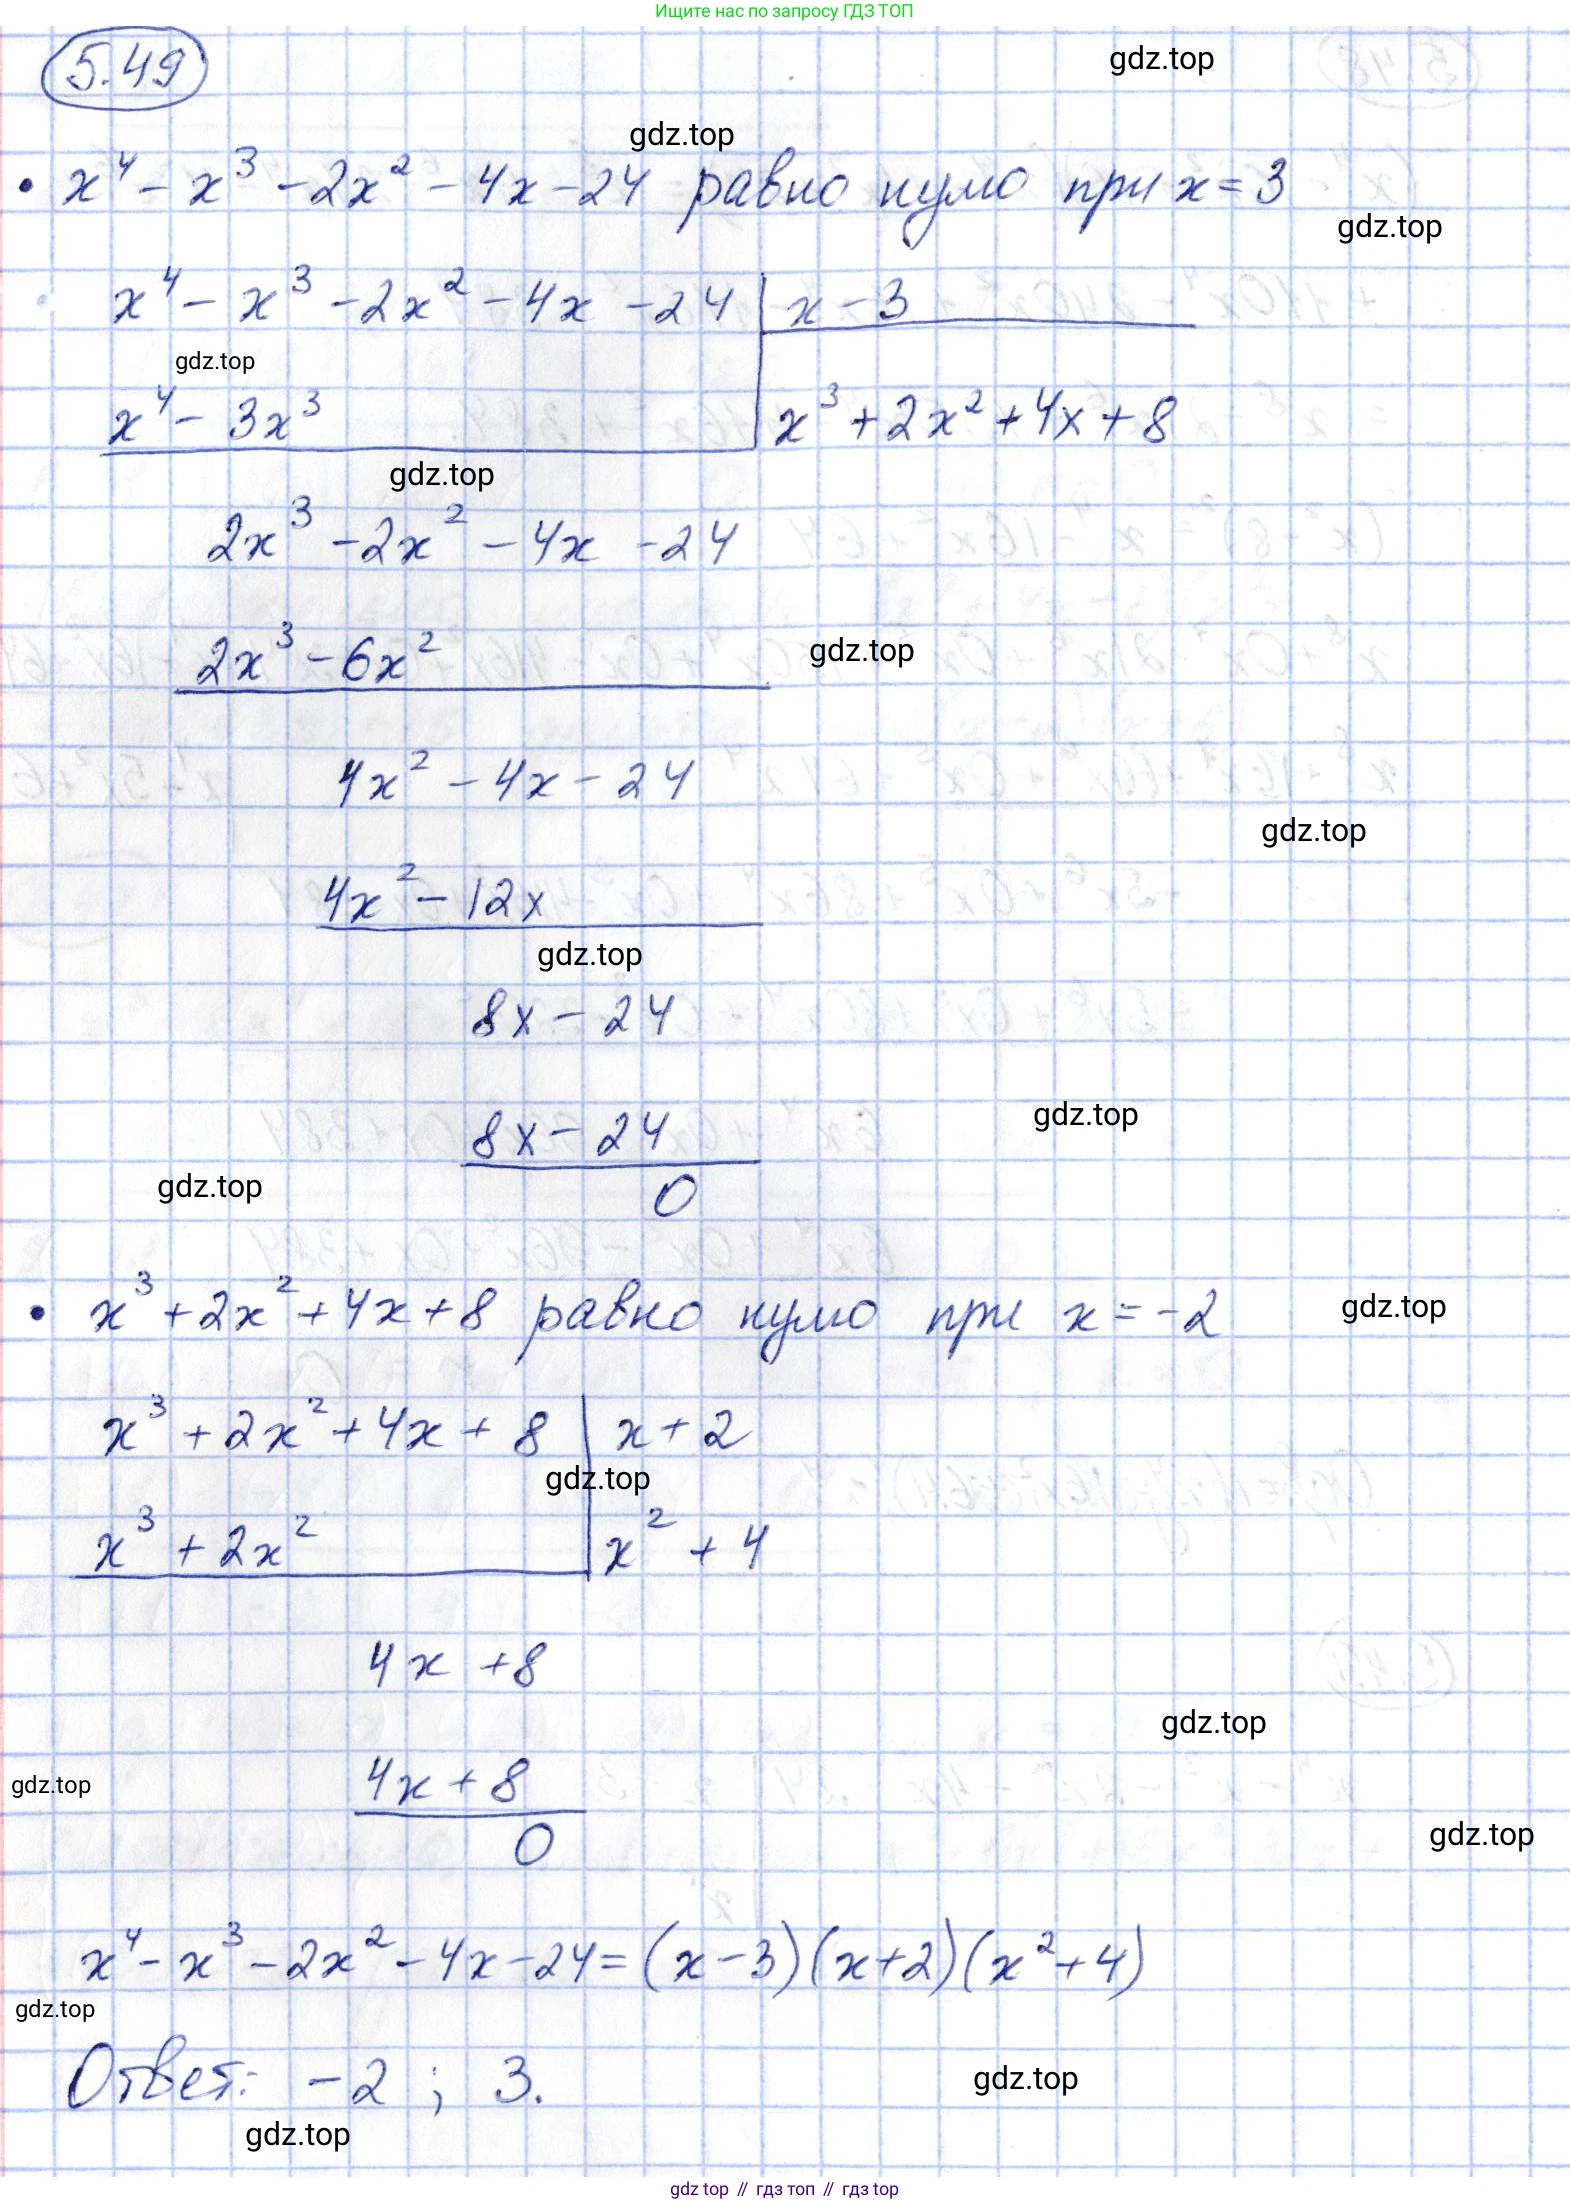 Ищите нас по запросу ГДЗ ТОП
5.49
gdz.top
gdz.top
• x⁴ - x³ - 2x² - 4x - 24 равно нулю при x = 3
gdz.top
x⁴ - x³ - 2x² - 4x - 24 | x - 3
gdz.top
x⁴ - 3x³ | x³ + 2x² + 4x + 8
gdz.top
2x³ - 2x² - 4x - 24
2x³ - 6x²
gdz.top
4x² - 4x - 24
gdz.top
4x² - 12x
gdz.top
8x - 24
8x - 24
gdz.top
gdz.top
0
• x³ + 2x² + 4x + 8 равно нулю при x = -2
gdz.top
x³ + 2x² + 4x + 8 | x + 2
gdz.top
x³ + 2x² | x² + 4
4x + 8
gdz.top
4x + 8
gdz.top
0
gdz.top
x⁴ - x³ - 2x² - 4x - 24 = (x - 3)(x + 2)(x² + 4)
gdz.top
Ответ: -2 ; 3.
gdz.top
gdz.top
gdz top // гдз топ // гдз top